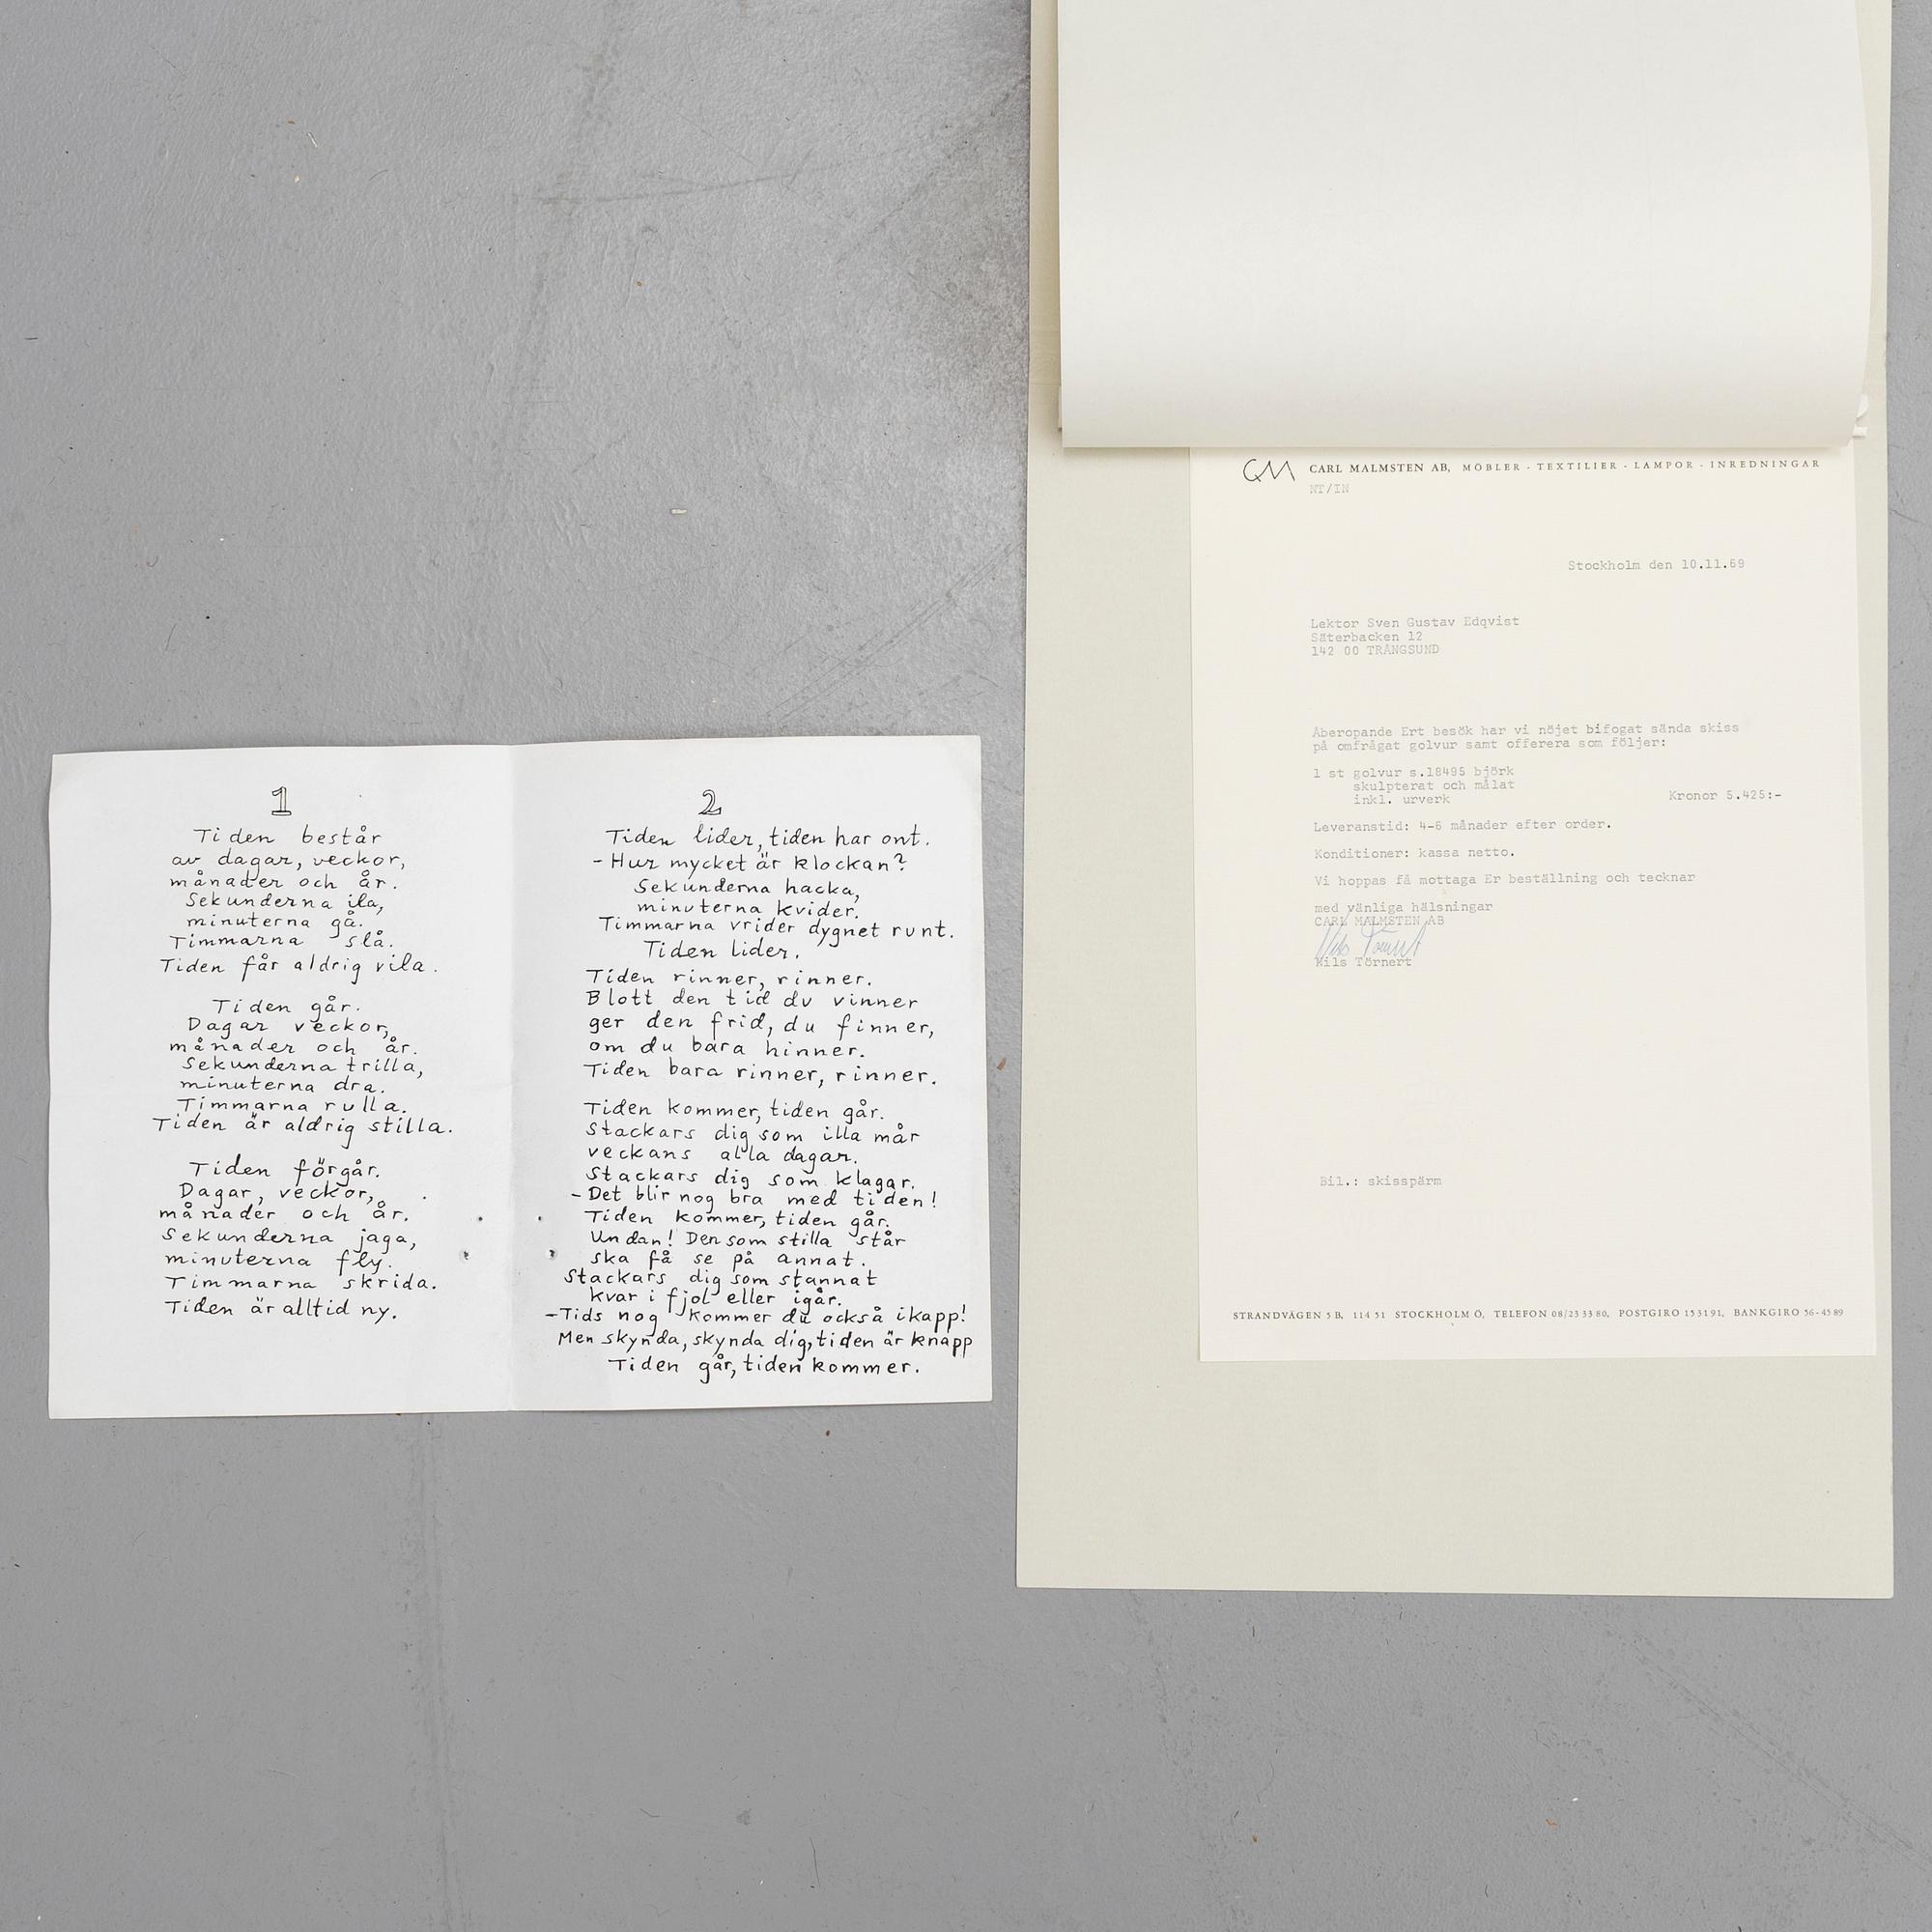 1
Tiden består
av dagar, veckor,
månader och år.
Sekunderna ila,
minuterna gå.
Timmarna slå.
Tiden får aldrig vila.
Tiden går.
Dagar veckor,
månader och år.
Sekunderna trilla,
minuterna dra.
Timmarna rulla.
Tiden är aldrig stilla.
Tiden förgår.
Dagar, veckor,
månader och år.
Sekunderna jaga,
minuterna fly.
Timmarna skrida.
Tiden är alltid ny.
2
Tiden lider, tiden har ont.
- Hur mycket är klockan?
Sekunderna hacka,
minuterna kvider.
Timmarna vrider dygnet runt.
Tiden lider.
Tiden rinner, rinner.
Blott den tid du vinner
ger den frid, du finner,
om du bara hinner.
Tiden bara rinner, rinner.
Tiden kommer, tiden går.
Stackars dig som illa mår
veckans alla dagar.
Stackars dig som klagar.
- Det blir nog bra med tiden!
Tiden kommer, tiden går.
Undan! Den som stilla står
ska få se på annat.
Stackars dig som stannat
kvar i fjol eller igår.
- Tids nog kommer du också ikapp!
Men skynda, skynda dig, tiden är knapp
Tiden går, tiden kommer.
CM CARL MALMSTEN AB, MÖBLER - TEXTILIER - LAMPOR - INREDNINGAR
NT/IN
Stockholm den 10.11.69
Lektor Sven Gustav Edqvist
Säterbacken 12
142 00 TRÅNGSUND
Åberopande Ert besök har vi nöjet bifogat sända skiss
på omfrågat golvur samt offerera som följer:
1 st golvur s.18495 björk
skulpterat och målat
inkl. urverk Kronor 5.425:-
Leveranstid: 4-6 månader efter order.
Konditioner: kassa netto.
Vi hoppas få mottaga Er beställning och tecknar
med vänliga hälsningar
CARL MALMSTEN AB
Nils Törnert
Nils Törnert
Bil.: skisspärm
STRANDVÄGEN 5 B, 114 51 STOCKHOLM Ö, TELEFON 08/23 33 80, POSTGIRO 15 31 91, BANKGIRO 56-45 89